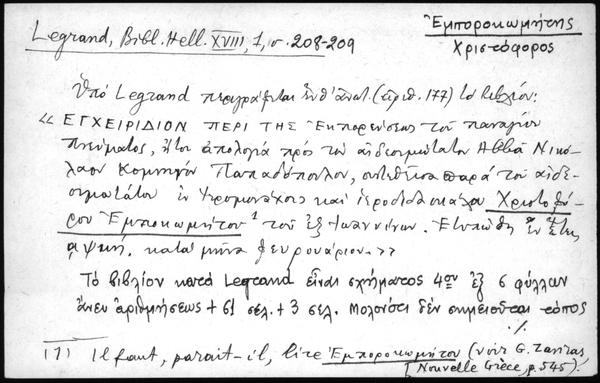 Ἐμποροκωμήτης
Χριστόφορος
Legrand, Bibl. Hell. XVIII, 1, σ. 208-209
Ὑπὸ Legrand περιγράφεται (ἀριθ. 177) τὸ βιβλίον:
« ΕΓΧΕΙΡΙΔΙΟΝ ΠΕΡΙ ΤΗΣ Ἐκπορεύσεως τοῦ παναγίου
Πνεύματος, ἤτοι ἀπολογία πρὸς τὸν αἰδεσιμώτατον Ἀββᾶ Νικό-
λαον Κομνηνὸν Παπαδόπουλον, συντεθεῖσα παρὰ τοῦ αἰδε-
σιμωτάτου ἐν Ἱερομονάχοις καὶ ἱεροδιδασκάλου Χριστοφό-
ρου Ἐμποκωμήτου 1 τοῦ ἐξ Ἰωαννίνων. Ἐτυπώθη ἐν ἔτει
αψκή, κατὰ μῆνα φευρουάριον. »
Τὸ βιβλίον κατὰ Legrand εἶναι σχήματος 4ου ἐξ 6 φύλλων
ἄνευ ἀριθμήσεως + 61 σελ. + 3 σελ. Μολονότι δὲν σημειοῦται τόπος
./.
(1) Il faut, parait-il, lire Ἐμποροκωμήτου (voir G. Zaviras,
Nouvelle Grèce, p. 545).